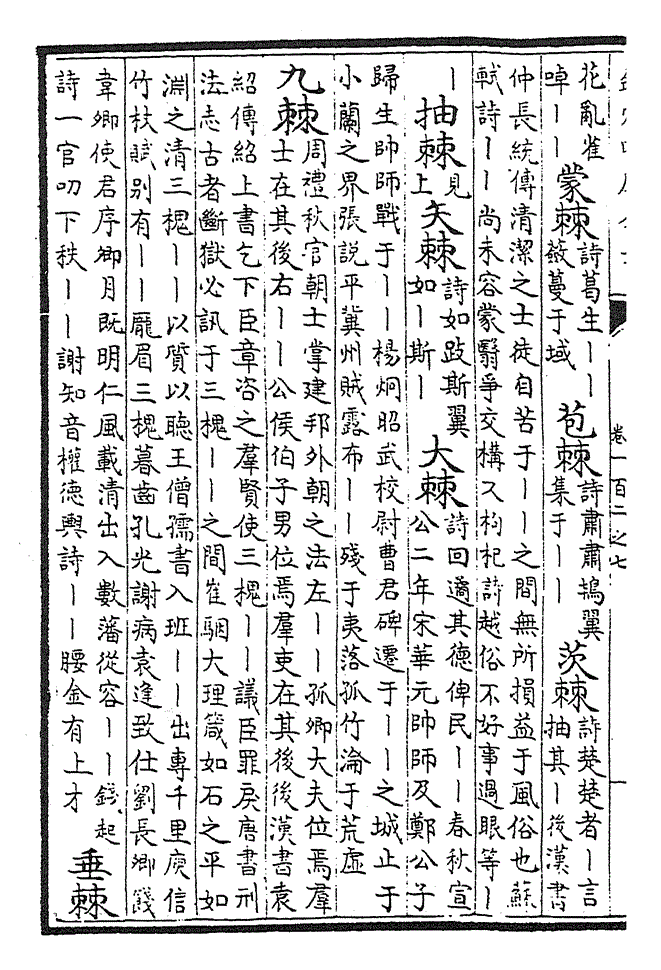 卷一百二之七
花亂雀啅丨丨 蒙棘 詩葛生丨丨蘞蔓于域 苞棘 詩肅肅鴇翼集于丨丨 茨棘 詩楚楚者丨言抽其丨後漢書
仲長統傳清潔之士徒自苦于丨丨之間無所損益于風俗也蘇
軾詩丨丨尚未容蒙翳爭交構又枸杞詩越俗不好事過眼等丨
丨 抽棘 見上 矢棘 詩如跂斯翼如丨斯丨 大棘 詩回遹其德俾民丨丨春秋宣公二年宋華元帥師及鄭公子
歸生帥師戰于丨丨楊炯昭武校尉曹君碑遷于丨丨之城止于
小蘭之界張説平冀州賊露布丨丨殘于夷落孤竹淪于荒虛
九棘 周禮秋官朝士掌建邦外朝之法左丨丨孤卿大夫位焉羣
士在其後右丨丨公侯伯子男位焉羣吏在其後後漢書袁
紹傳紹上書乞下臣章咨之羣賢使三槐丨丨議臣罪戾唐書刑
法志古者斷獄必訊于三槐丨丨之間崔駰大理箴如石之平如
淵之清三槐丨丨以質以聽王僧孺書入班丨丨出專千里庾信
竹杖賦别有丨丨龎眉三槐暮齒孔光謝病袁逢致仕劉長卿餞
韋卿使君序卿月既明仁風載清出入數藩從容丨丨錢起
詩一官叨下秩丨丨謝知音權德輿詩丨丨腰金有上才 垂棘